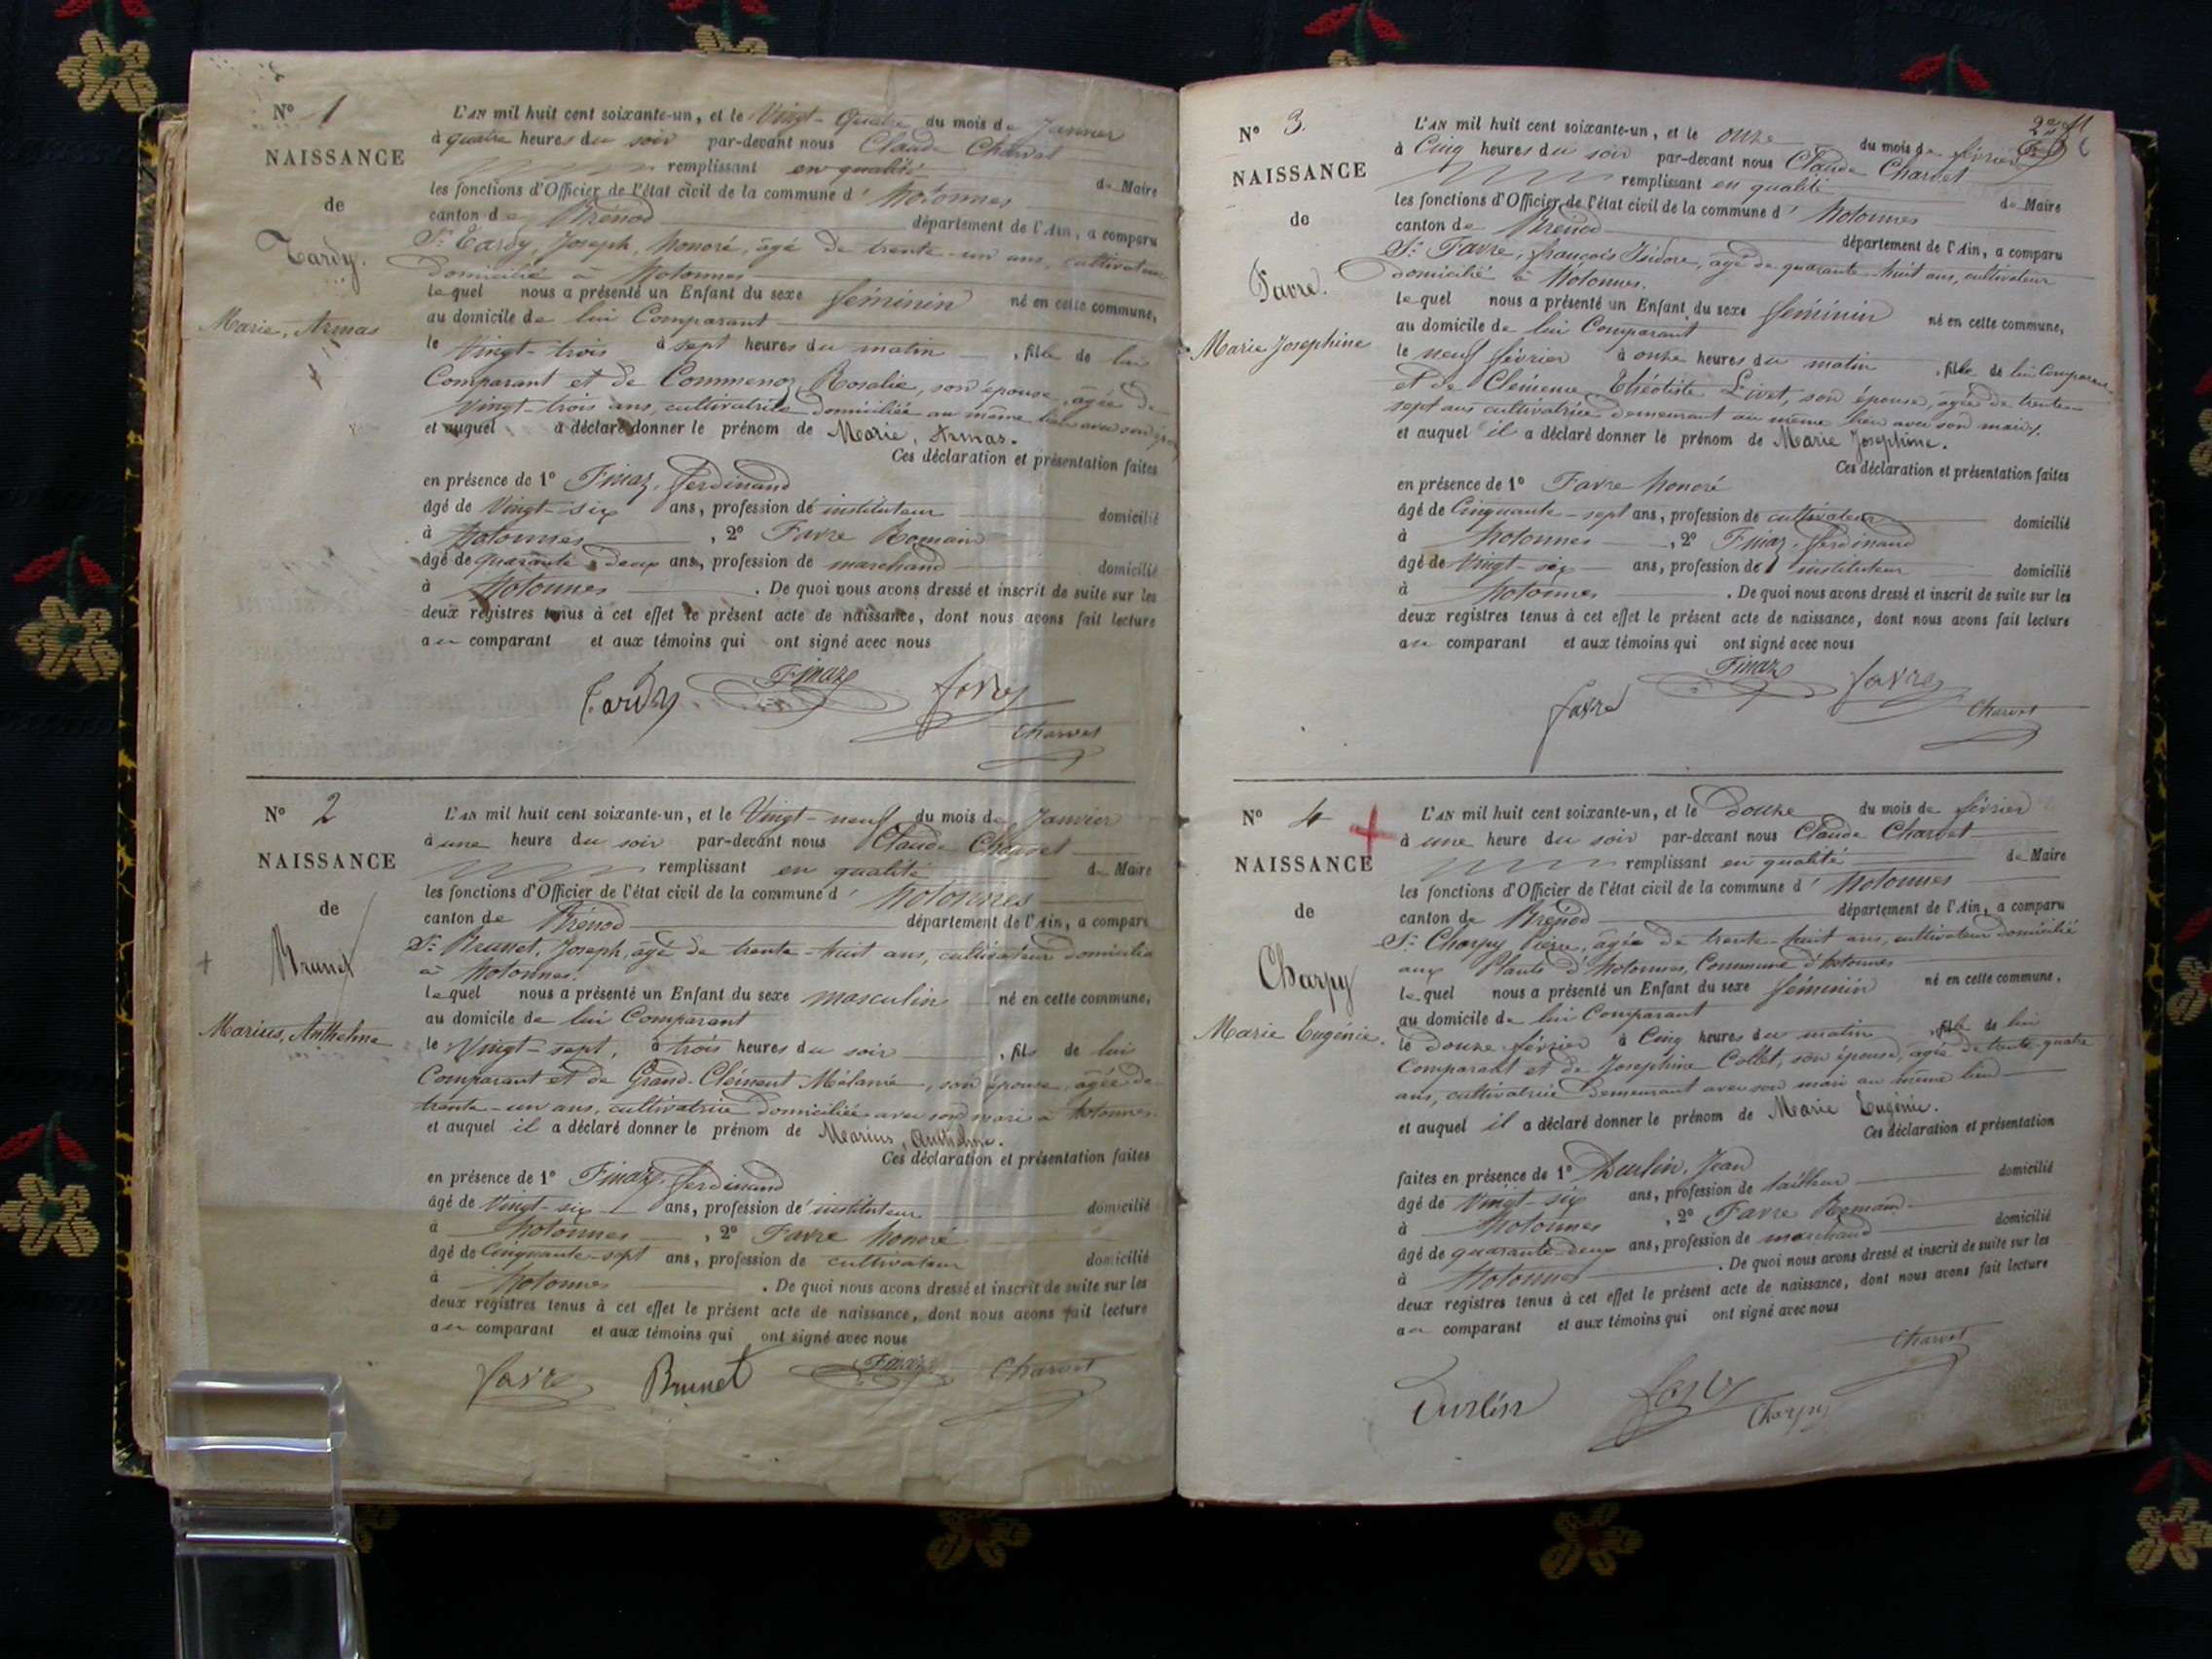 N° 1
NAISSANCE
de
Tardy.
Marie, Armas
L'AN mil huit cent soixante-un, et le Vingt-quatre du mois de Janvier
à quatre heures du soir par-devant nous Claude Charvet
remplissant en qualité de Maire
les fonctions d'Officier de l'état civil de la commune d' hotonnes
canton de Brénod département de l'Ain, a comparu
Sr. Tardy, Joseph, honoré, âgé de trente-un ans, cultivateur
domicilié à hotonnes
lequel nous a présenté un Enfant du sexe féminin né en cette commune,
au domicile de lui Comparant
le Vingt-trois à sept heures du matin , fille de lui
Comparant et de Commenoz Rosalie, son épouse, âgée de
Vingt-trois ans, cultivatrice domiciliée au même lieu avec son
et auquel a déclaré donner le prénom de Marie, Armas.
Ces déclaration et présentation faites
en présence de 1° Finaz, ferdinand
âgé de Vingt-six ans, profession de instituteur domicilié
à hotonnes , 2° Favre Romain
âgé de quarante-deux ans, profession de marchand domicilié
à hotonnes . De quoi nous avons dressé et inscrit de suite sur les
deux registres tenus à cet effet le présent acte de naissance, dont nous avons fait lecture
au comparant et aux témoins qui ont signé avec nous
Tardy Finaz favre
Charvet
N° 2
NAISSANCE
de
Brunet
Marius, Anthelme
L'AN mil huit cent soixante-un, et le Vingt-neuf du mois de Janvier
à une heure du soir par-devant nous Claude Charvet
remplissant en qualité de Maire
les fonctions d'Officier de l'état civil de la commune d' hotonnes
canton de Brénod département de l'Ain, a comparu
Sr. Brunet, Joseph, âgé de trente-huit ans, cultivateur domicilié
à hotonnes.
lequel nous a présenté un Enfant du sexe masculin né en cette commune,
au domicile de lui Comparant
le Vingt-sept, à trois heures du soir , fils de lui
Comparant et de Grand-Clément Mélanie, son épouse, âgée de
trente-un ans, cultivatrice domiciliée avec son mari à hotonnes.
et auquel il a déclaré donner le prénom de Marius, Anthelme.
Ces déclaration et présentation faites
en présence de 1° Finaz, ferdinand
âgé de Vingt-six ans, profession de instituteur domicilié
à hotonnes , 2° Favre honoré
âgé de Cinquante-sept ans, profession de cultivateur domicilié
à hotonnes . De quoi nous avons dressé et inscrit de suite sur les
deux registres tenus à cet effet le présent acte de naissance, dont nous avons fait lecture
au comparant et aux témoins qui ont signé avec nous
favre Brunet Finaz Charvet
N° 3.
NAISSANCE
de
Favre.
Marie Josephine
L'AN mil huit cent soixante-un, et le onze du mois de février
à Cinq heures du soir par-devant nous Claude Charvet
remplissant en qualité de Maire
les fonctions d'Officier de l'état civil de la commune d' hotonnes
canton de Brénod département de l'Ain, a comparu
Sr. Favre, françois Isidore, âgé de quarante-huit ans, cultivateur
domicilié à hotonnes.
lequel nous a présenté un Enfant du sexe féminin né en cette commune,
au domicile de lui Comparant
le neuf février à onze heures du matin , fille de lui Comparant
et de Clémence Théotiste Livet, son épouse, âgée de trente-
sept ans cultivatrice demeurant au même lieu avec son mari.
et auquel il a déclaré donner le prénom de Marie Josephine.
Ces déclaration et présentation faites
en présence de 1° Favre honoré
âgé de Cinquante-sept ans, profession de cultivateur domicilié
à hotonnes , 2° Finaz, ferdinand
âgé de Vingt-six ans, profession de instituteur domicilié
à hotonnes . De quoi nous avons dressé et inscrit de suite sur les
deux registres tenus à cet effet le présent acte de naissance, dont nous avons fait lecture
au comparant et aux témoins qui ont signé avec nous
favre Finaz favre
Charvet
N° 4
NAISSANCE
de
Charpy
Marie Eugénie.
L'AN mil huit cent soixante-un, et le Douze du mois de février
à une heure du soir par-devant nous Claude Charvet
remplissant en qualité de Maire
les fonctions d'Officier de l'état civil de la commune d' hotonnes
canton de Brénod département de l'Ain, a comparu
Sr. Charpy Pierre, âgée de trente-huit ans, cultivateur domicilié
aux Plants d'hotonnes, Commune d'hotonnes
lequel nous a présenté un Enfant du sexe féminin né en cette commune,
au domicile de lui Comparant
le douze février à Cinq heures du matin , fille de lui
Comparant et de Josephine Collet, son épouse, âgée de trente-quatre
ans, cultivatrice demeurant avec son mari au même lieu
et auquel il a déclaré donner le prénom de Marie Eugénie.
Ces déclaration et présentation
faites en présence de 1° Jean
âgé de Vingt-six ans, profession de tailleur domicilié
à hotonnes , 2° Favre Romain
âgé de quarante-deux ans, profession de marchand domicilié
à hotonnes . De quoi nous avons dressé et inscrit de suite sur les
deux registres tenus à cet effet le présent acte de naissance, dont nous avons fait lecture
au comparant et aux témoins qui ont signé avec nous
Charvet
favre Charpy